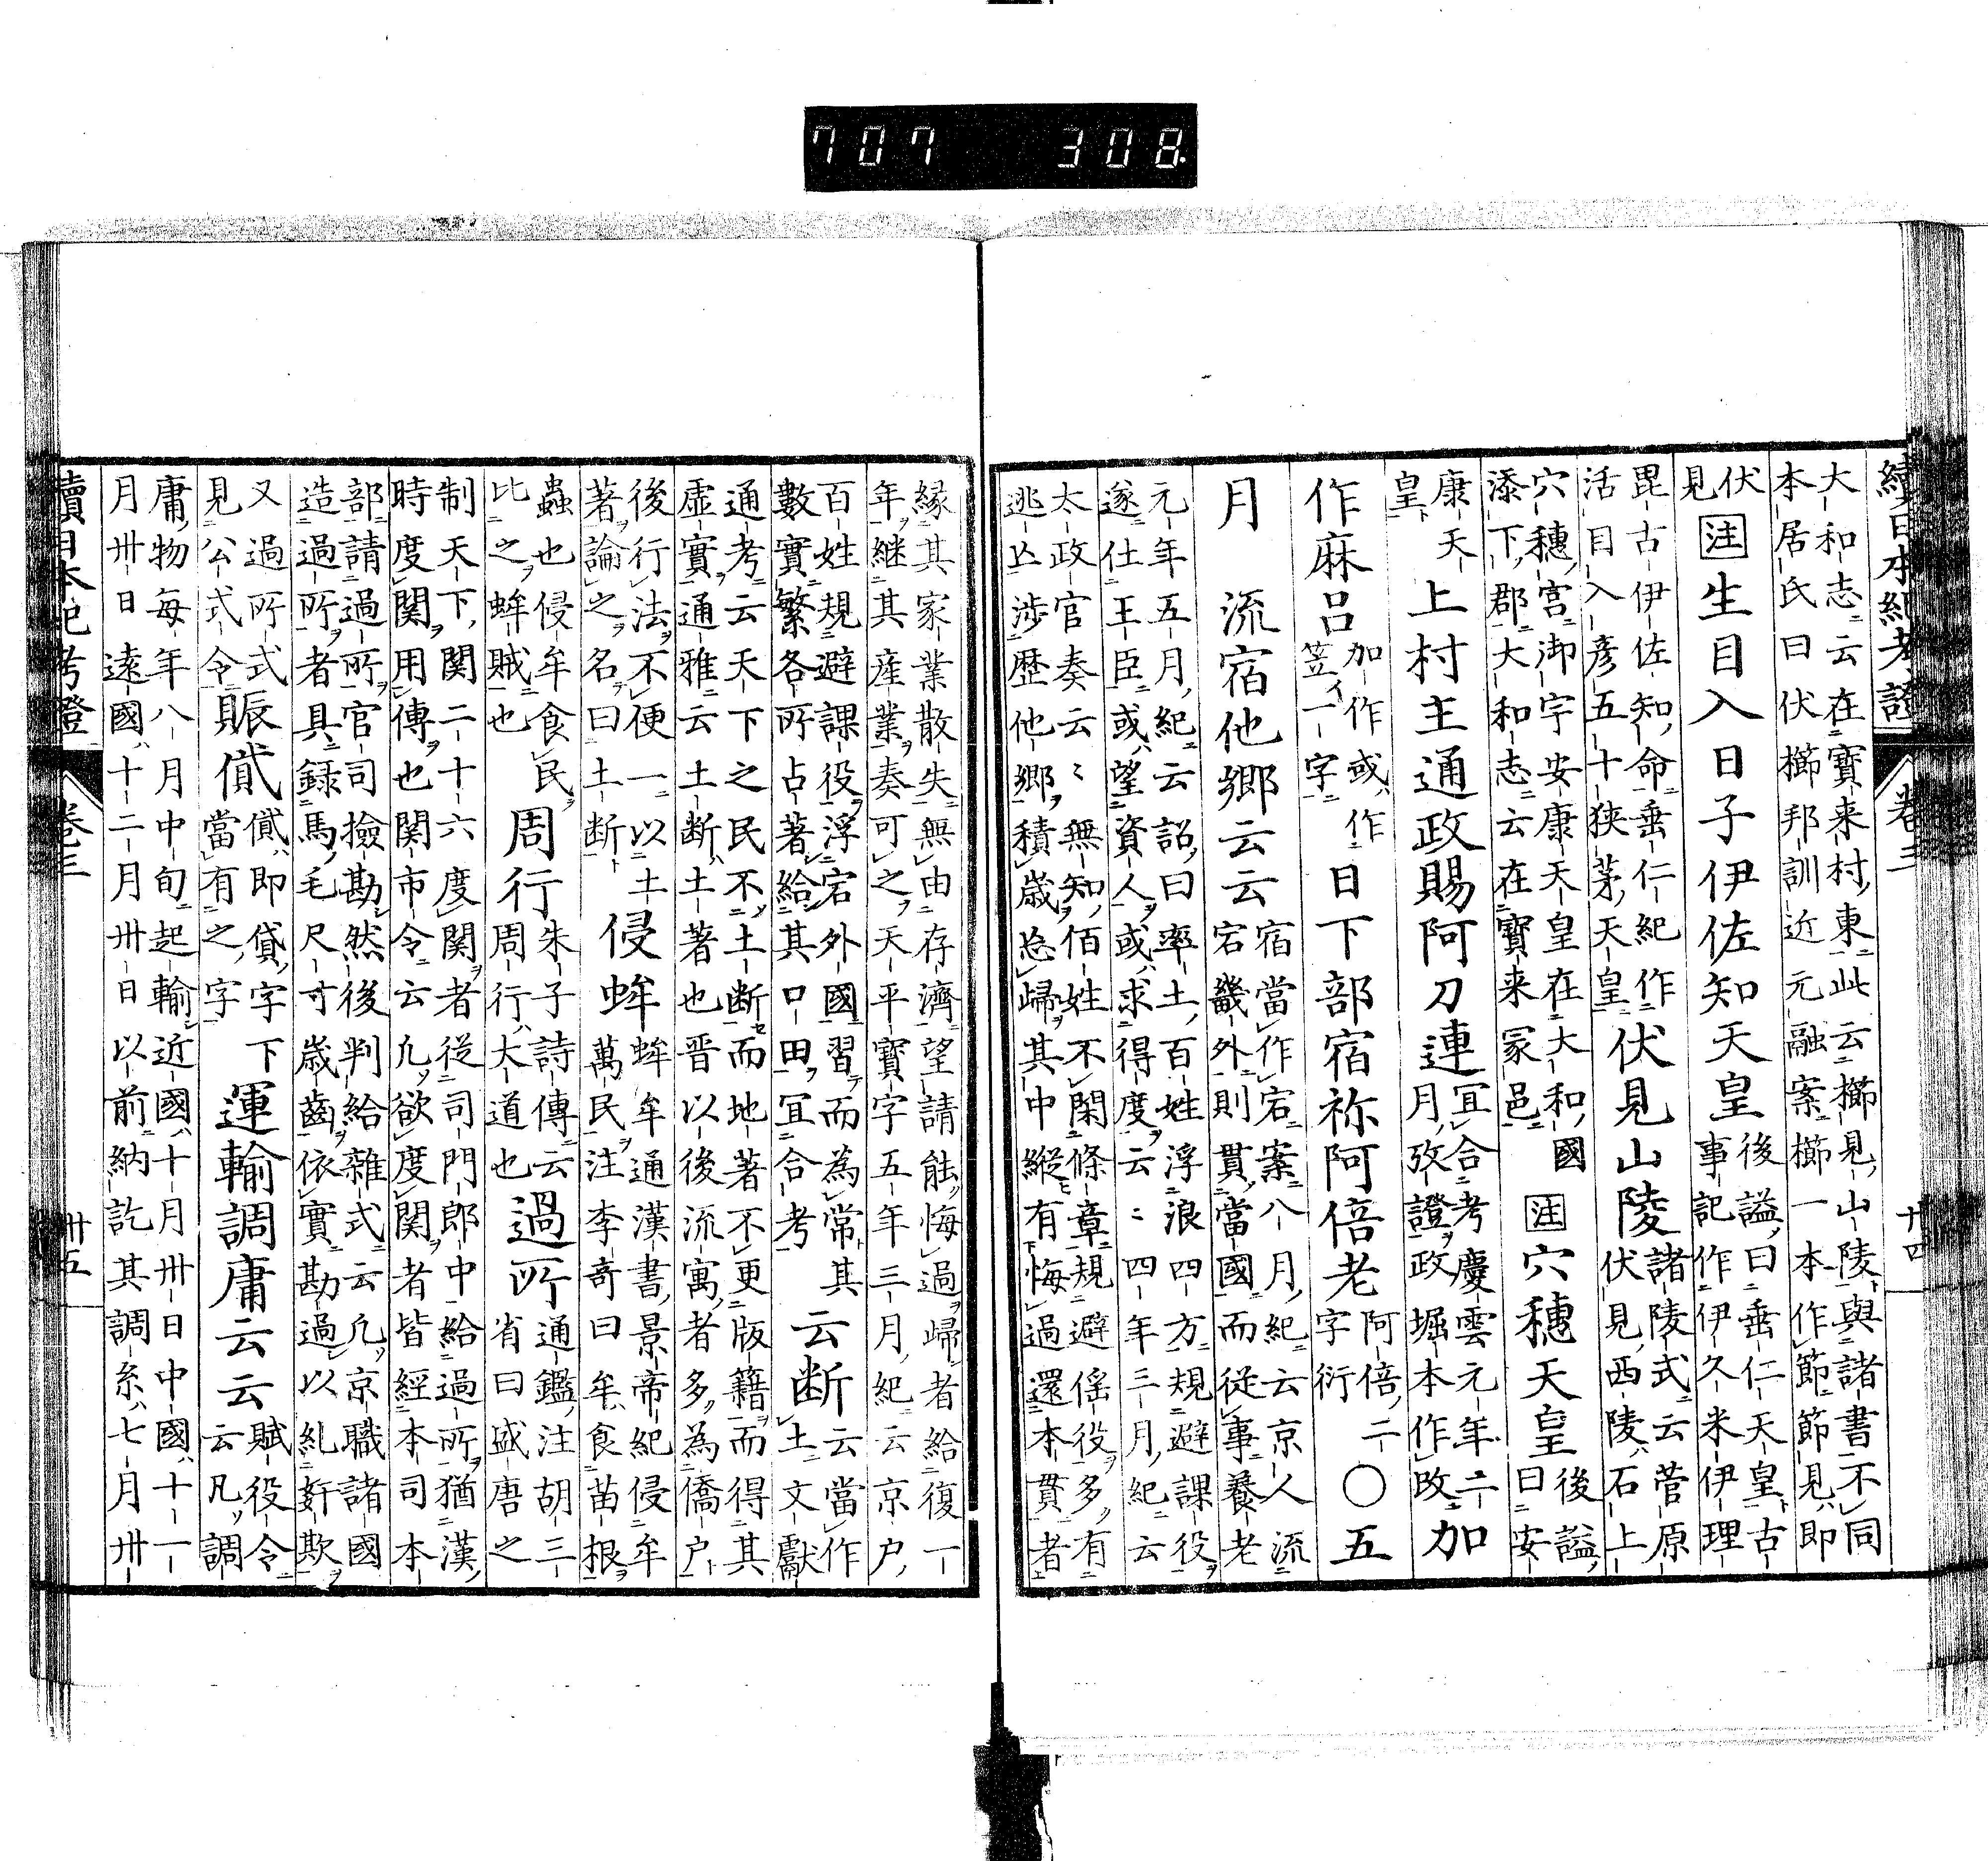 707 308
續日本紀考證 卷三 廿四
大和志云在寶来村東此云櫛見山陵與諸書不同
本居氏曰伏櫛邦訓近元融案櫛一本作節節見即
伏見 注 生目入日子伊佐知天皇 後謚曰垂仁天皇古事記作伊久米伊理
毘古伊佐知命垂仁紀作
活目入彦五十狹茅天皇 伏見山陵 諸陵式云菅原伏見西陵石上
穴穗宮御宇安康天皇在大和國
添下郡大和志云在寶来冢邑 注 穴穗天皇 後謚曰安
康天皇 上村主通政賜阿刀連 冝合考慶雲元年二月攷證政堀本作改 加
作麻呂 加作或作笠亻一字 日下部宿祢阿倍老 阿倍二字衍 〇五
月 流宿他郷云云 宿當作宕案八月紀云京人流宕畿外則貫當國而從事養老
元年五月紀云詔曰率土百姓浮浪四方規避課役
遂仕王臣或望資人或求得度云〻四年三月紀云
太政官奏云〻無知佰姓不閑條章規避傜役多有
逃亾涉歷他郷積歳忘歸其中縱有悔過還本貫者
縁其家業散失無由存濟望請能悔過歸者給復一
年継其産業奏可之天平寶字五年三月紀云京户
百姓規避課役浮宕外國習而為常其
數實繁各所占著給其口田冝合考 云断 云當作土文獻
通考云天下之民不土断而地著不更版籍而得其
虚實通雅云土断土著也晋以後流寓者多為僑户
後行法不便一以土
著論之名曰土断 侵蛑 蛑牟通漢書景帝紀侵牟萬民注李奇曰牟食苗根
蟲也侵牟食民
比之蛑賊也 周行 朱子詩傳云周行大道也 過所 通鑑注胡三省曰盛唐之
制天下関二十六度関者從司門郎中給過所猶漢
時度関用傳也関市令云凡欲度関者皆經本司本
部請過所官司撿勘然後判給雜式云凡京職諸國
造過所者具録馬毛尺寸歳齒依實勘過以糺姧欺
又過所式
見公式令 賑貸 貸即貸字下當有之字 運輸調庸云云 賦役令云凡調
庸物每年八月中旬起輸近國十月卅日中國十一
月卅日遠國十二月卅日以前納訖其調糸七月卅
續日本紀考證 卷三 廿五